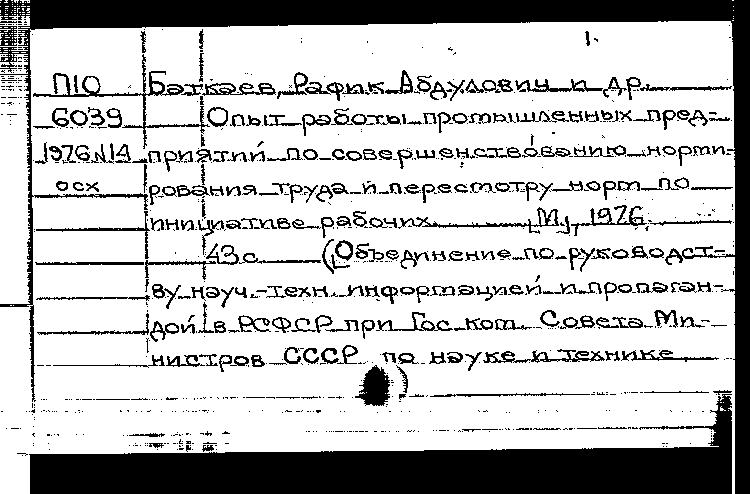 1.
П10 Баткаев, Рафик Абдулович и др.
6039 Опыт работы промышленных пред-
1976N14 приятий по совершенствованию норми-
осх рования труда и пересмотру норм по
инициативе рабочих. [М.], 1976.
43с. (Объединение по руководст-
ву науч.-техн. информацией и пропаган-
дой в РСФСР при Гос. ком. Совета Ми-
нистров СССР по науке и технике